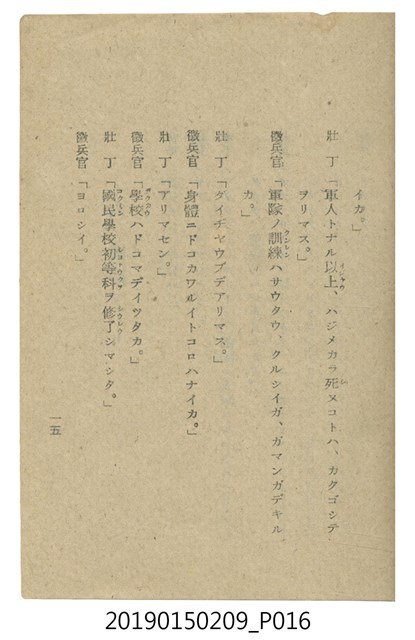 イカ。」
壯丁「軍人トナル以上、ハジメカラ死ヌコトハ、カクゴシテ
ヲリマス。」
徵兵官「軍隊ノ訓練ハサウタウ、クルシイガ、ガマンガデキル
カ。」
壯丁「ダイヂヤウブデアリマス。」
徵兵官「身體ニドコカワルイトコロハナイカ。」
壯丁「アリマセン。」
徵兵官「學校ハドコマデイツタカ。」
壯丁「國民學校初等科ヲ修了シマシタ。」
徵兵官「ヨロシイ。」
一五
20190150209_P016